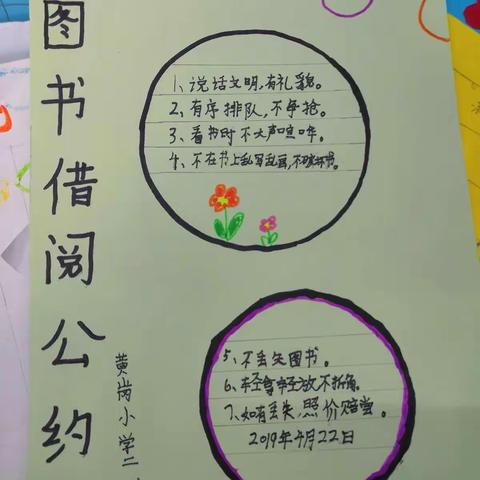 图书借阅公约
1、说话文明,有礼貌。
2、有序排队,不争抢。
3、看书时不大声喧哗。
4、不在书上乱写乱画,不破坏书。
5、不丢失图书。
6、轻拿轻放不折角。
7、如有丢失,照价赔尝。
2019年4月22日
黄岗小学二